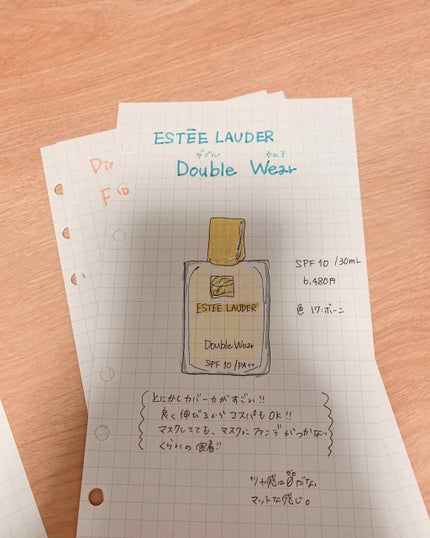 ESTĒE LAUDER
ダブル ウェア
Double Wear
SPF 10 /30mL
6,480円
色 17.ボーン
ESTEE LAUDER
Double Wear
SPF 10 /PA++
とにかくカバー力がすごい!!
良く伸びるからコスパもOK!!
マスクしてても、マスクにファンデがつかない
くらいの密着!!
ツヤ感は0だな。
ゼロ
マットな感じ。